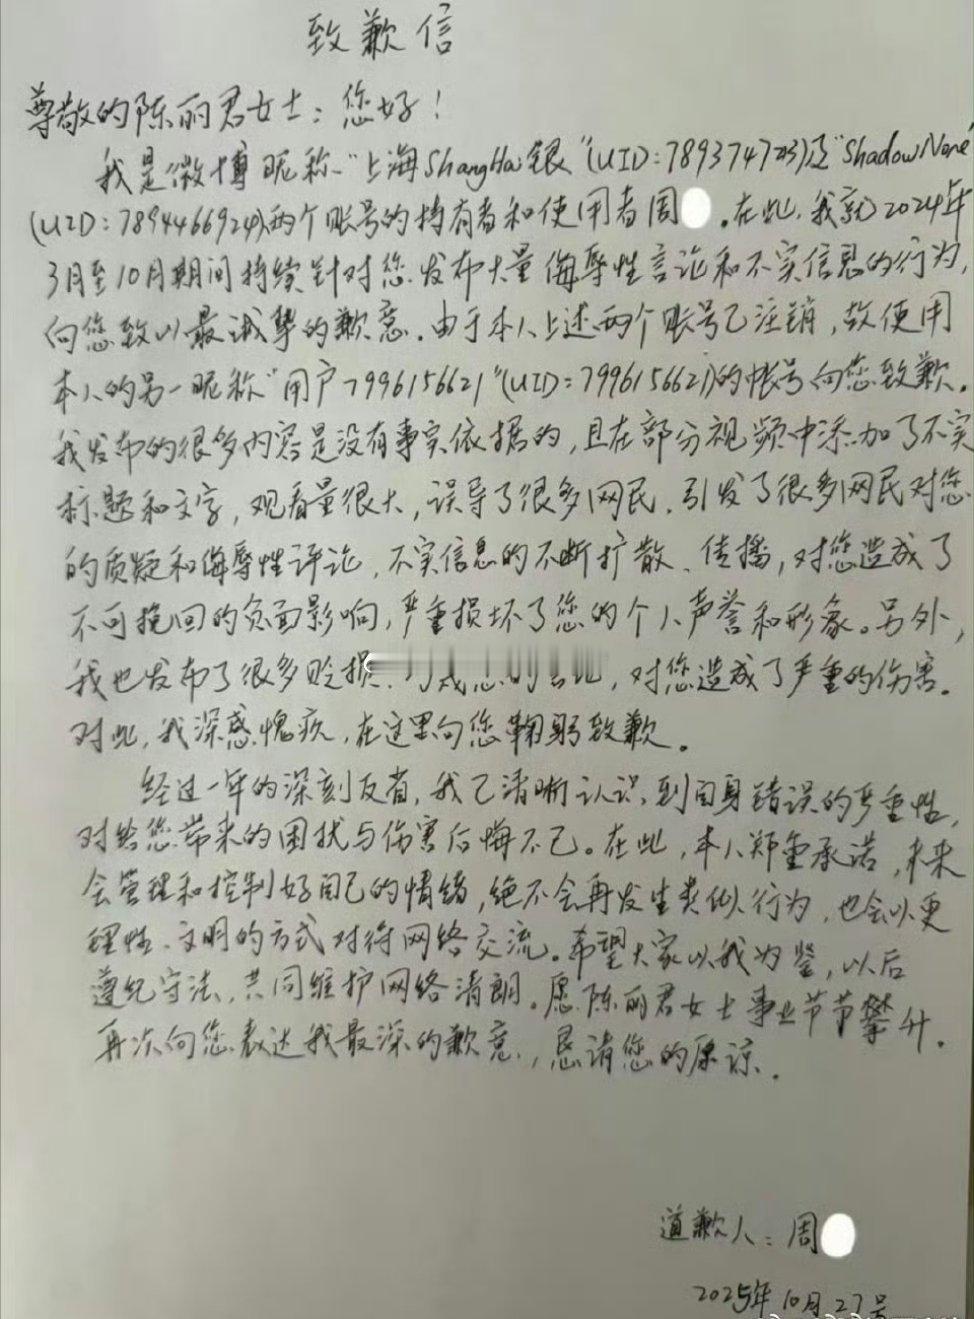 致歉信
尊敬的陈丽君女士：您好！
我是微博昵称“上海ShangHai银”(UID:7893747213)及“ShadowNone”
(UID:7894466924)两个账号的持有者和使用者周 。在此，我就2024年
3月至10月期间持续针对您发布大量侮辱性言论和不实信息的行为，
向您致以最诚挚的歉意。由于本人上述两个账号已注销，故使用
本人的另一昵称“用户7996156621”(UID:7996156621)的帐号向您致歉。
我发布的很多内容是没有事实依据的，且在部分视频中添加了不实
标题和文字，观看量很大，误导了很多网民，引发了很多网民对您
的质疑和侮辱性评论，不实信息的不断扩散、传播，对您造成了
不可挽回的负面影响，严重损坏了您的个人声誉和形象。另外，
我也发布了很多贬损，对您造成了严重的伤害。
对此，我深感愧疚，在这里向您鞠躬致歉。
经过一年的深刻反省，我已清晰认识到自身错误的严重性，
对给您带来的困扰与伤害后悔不已。在此，本人郑重承诺，未来
会管理和控制好自己的情绪，绝不会再发生类似行为，也会以更
理性、文明的方式对待网络交流。希望大家以我为鉴，以后
遵纪守法，共同维护网络清朗。愿陈丽君女士事业节节攀升。
再次向您表达我最深的歉意，恳请您的原谅。
道歉人：周
2025年10月27号